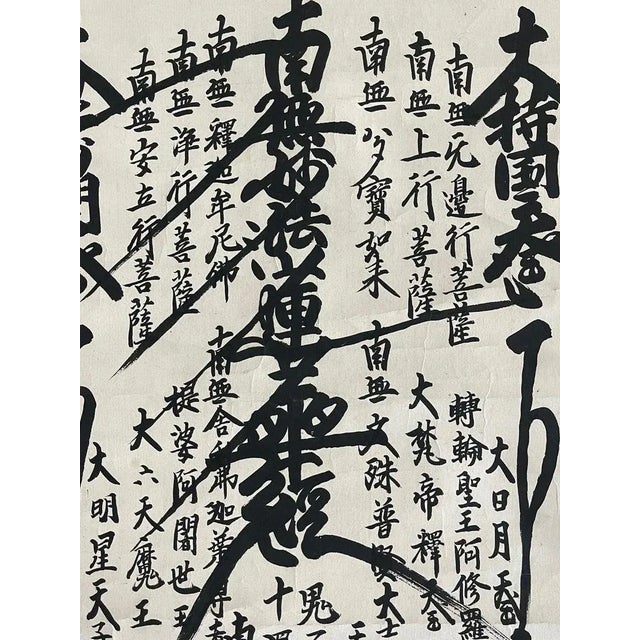 大持国天王
南無无邊行菩薩
南無上行菩薩
南無多寶如来
南無妙法蓮華経
南無釋迦牟尼佛
南無浄行菩薩
南無安立行菩薩
大日月天
轉輪聖王阿修羅
大梵帝釋天
南無文殊普賢大士
鬼
十
南無舎利弗迦葉尊
提婆阿闍世王
大六天魔王
大明星天子